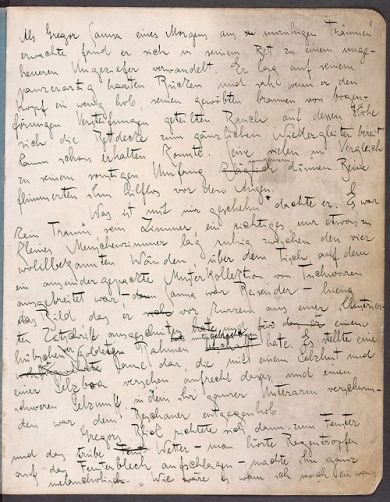 Als Gregor Samsa eines Morgens aus unruhigen Träumen
erwachte fand er sich in seinem Bett zu einem unge-
heueren Ungeziefer verwandelt. Er lag auf seinem
panzerartig harten Rücken und sah wenn er den
Kopf ein wenig hob, seinen gewölbten braunen von bogen-
förmigen Versteifungen geteilten Bauch auf dessen Höhe
sich die Bettdecke zum gänzlichen Niedergleiten bereit
kaum noch erhalten konnte. Seine vielen im Vergleich
zu seinem sonstigen Umfang dünnen Beine
flimmerten ihm hilflos vor den Augen.
Was ist mit mir geschehn? dachte er. Es war
kein Traum sein Zimmer ein richtiges nur etwas zu
kleines Menschenzimmer lag ruhig zwischen den vier
wohlbekannten Wänden, über dem Tisch auf dem
ein auseinander gepackte Musterkollektion von Tuchwaren
ausgebreitet war – Samsa war Reisender – hieng
das Bild das er vor kurzem aus einer illustrier-
ten Zeitschrift ausgeschnitten und in einem
hübschen vergoldeten Rahmen hatte. Es stellte eine
Dame dar, die mit einem Pelzhut und
einer Pelzboa versehen aufrecht dasass und einen
schweren Pelzmuff in dem ihr ganzer Unterarm verschwun-
den war dem Beschauer entgegenhob.
Gregors Blick richtete sich dann zum Fenster
und das trübe Wetter – man hörte Regentropfen
auf das Fensterblech aufschlagen – machte ihn ganz
melancholisch. "Wie wäre es wenn ich noch ein wenig